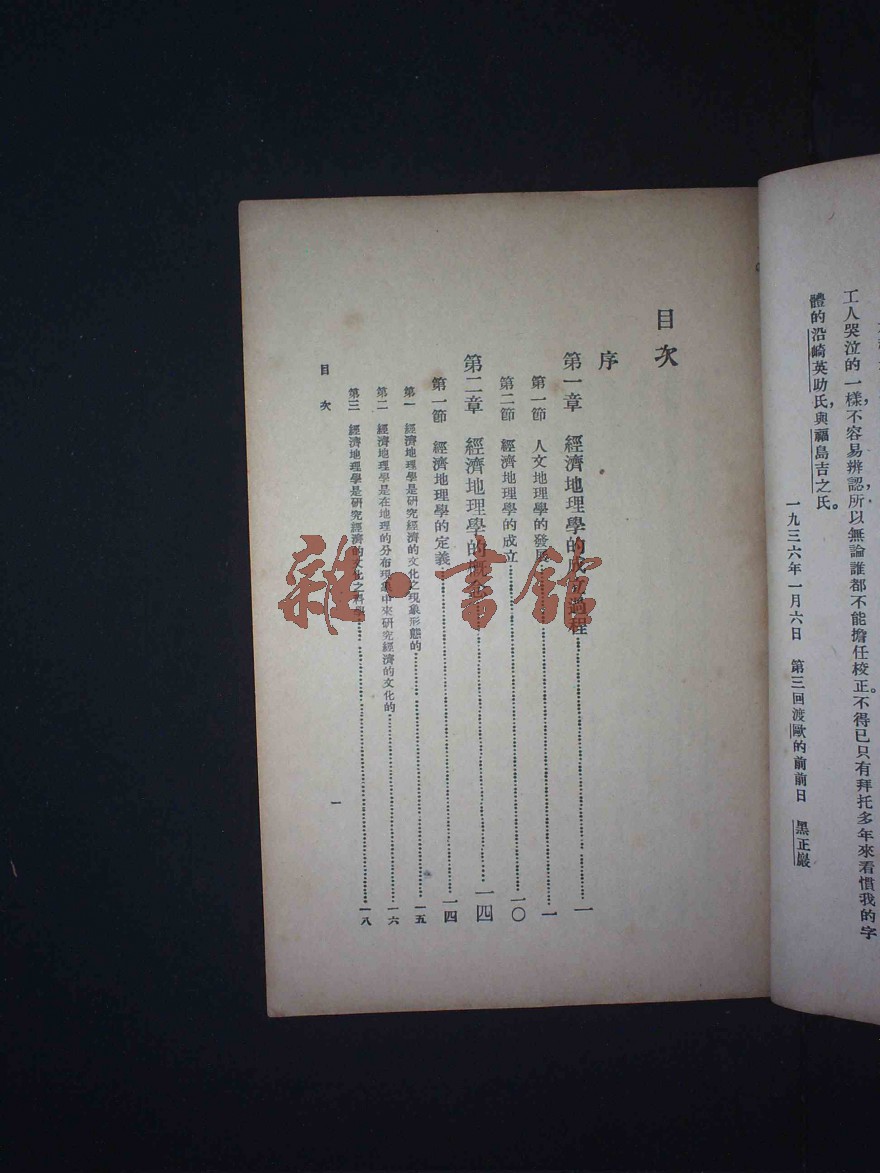 工人哭泣的一樣，不容易辨認，所以無論誰都不能擔任校正。不得已只有拜托多年來看慣我的字
體的沿崎英助氏，與福島吉之氏。
一九三六年一月六日　第三回渡歐的前前日　黑正巖
目次
序
第一章　經濟地理學的成立過程……一
第一節　人文地理學的發展……一
第二節　經濟地理學的成立……一〇
第二章　經濟地理學的概念……一四
第一節　經濟地理學的定義……一四
第一　經濟地理學是研究經濟的文化之現象形態的……一五
第二　經濟地理學是在地理的分布現象中來研究經濟的文化的……一六
第三　經濟地理學是研究經濟的文化之……一八
目次
一
雜·書館